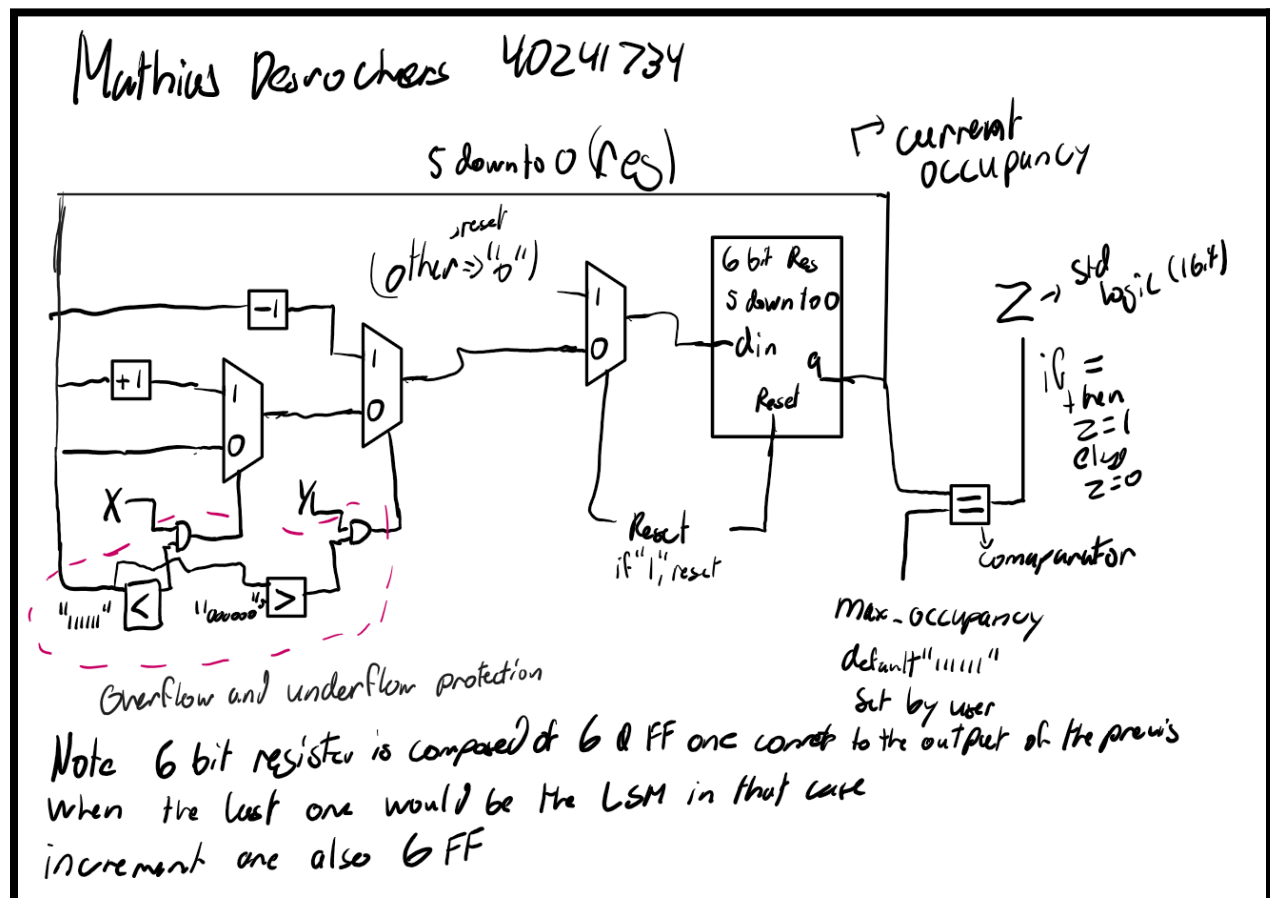 Mathias Desrochers 40241734
5 downto 0 (reg)
current
occupancy
reset
(other => "0")
6 bit Res
5 downto 0
din
q
Reset
1
0
-1
1
0
+1
1
0
Z → std
logic (1bit)
if =
then
Z=1
else
Z=0
X
Y
Reset
if "1", reset
=
comaparator
"111111" <
"000000" >
max_occupancy
default "111111"
Set by user
Overflow and underflow protection
Note 6 bit register is composed of 6 FF one to the output of the
when the last one would be the LSM in that case
increment are also 6 FF